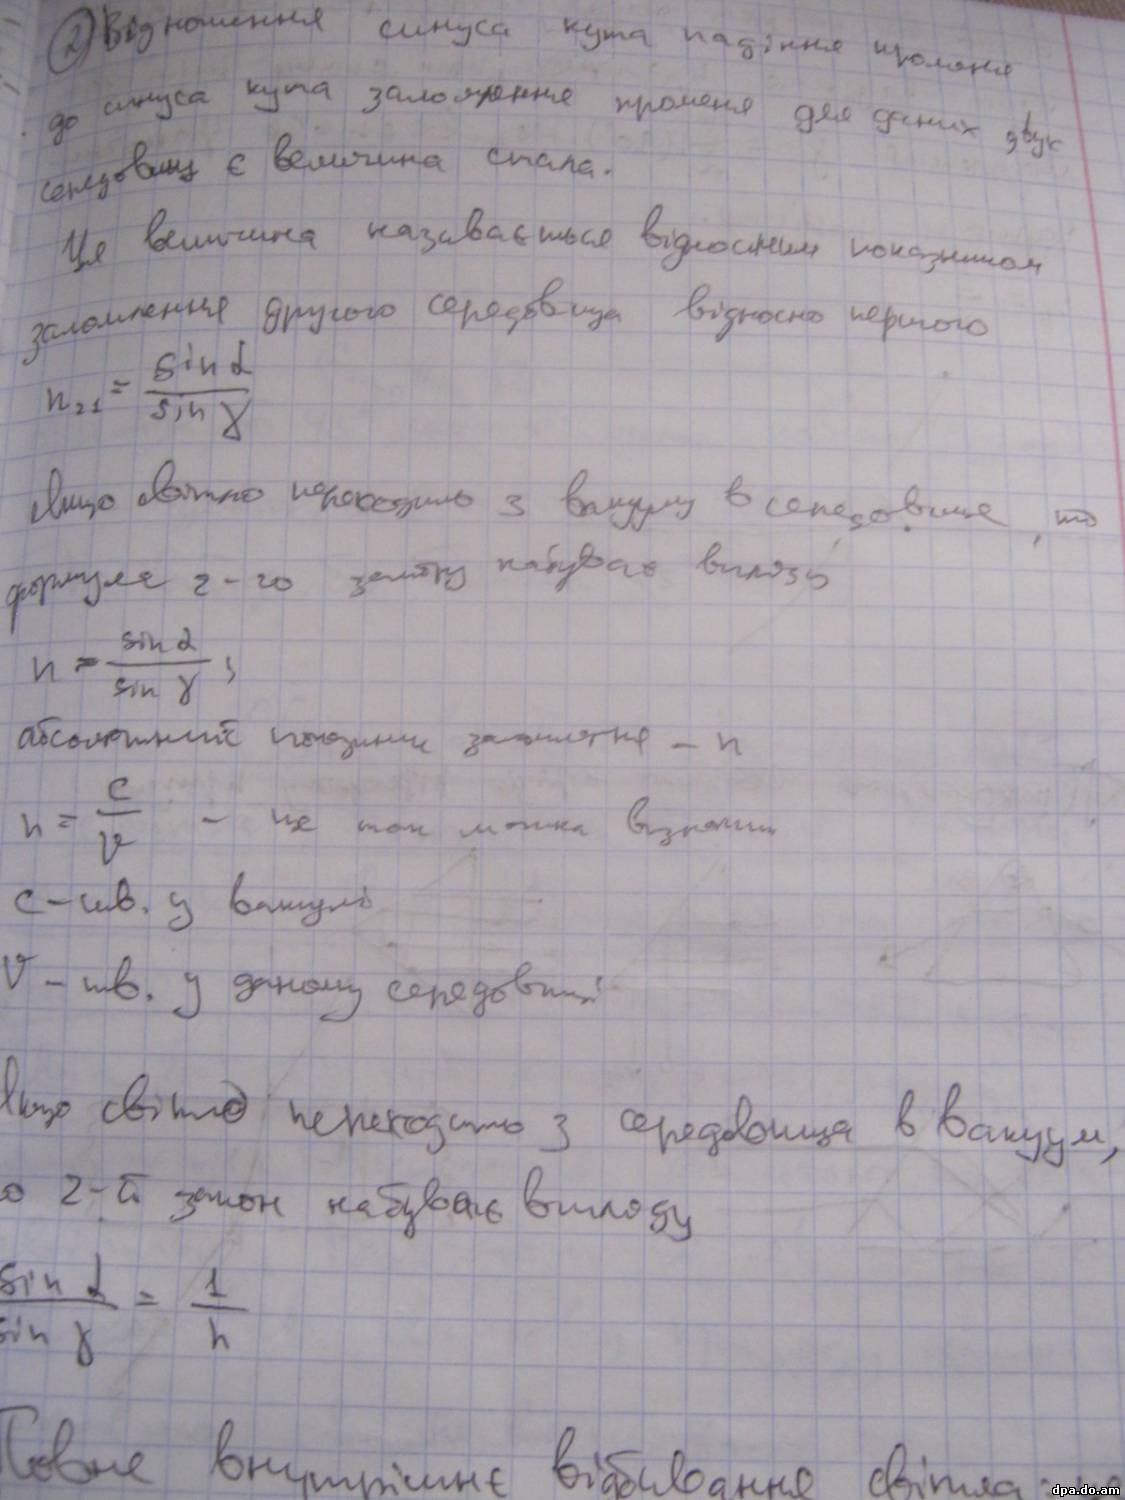 ② Відношення синуса кута падіння променя
до синуса кута заломлення променя для даних двух
середовищ є величина стала.
Ця величина називається відносним показником
заломлення другого середовища відносно першого
n₂₁ = sin α / sin γ
Якщо світло переходить з вакууму в середовище, то
формула 2-го закону набуває вигляду
n = sin α / sin γ ;
абсолютний показник заломлення – n
n = c / v – це так можна
c – шв. у вакуумі
v – шв. у даному середовищі
Якщо світло переходить з середовища в вакуум,
о 2-й закон набуває вигляду
sin α / sin γ = 1 / n
Повне внутрішнє відбивання світла
dpa.do.am